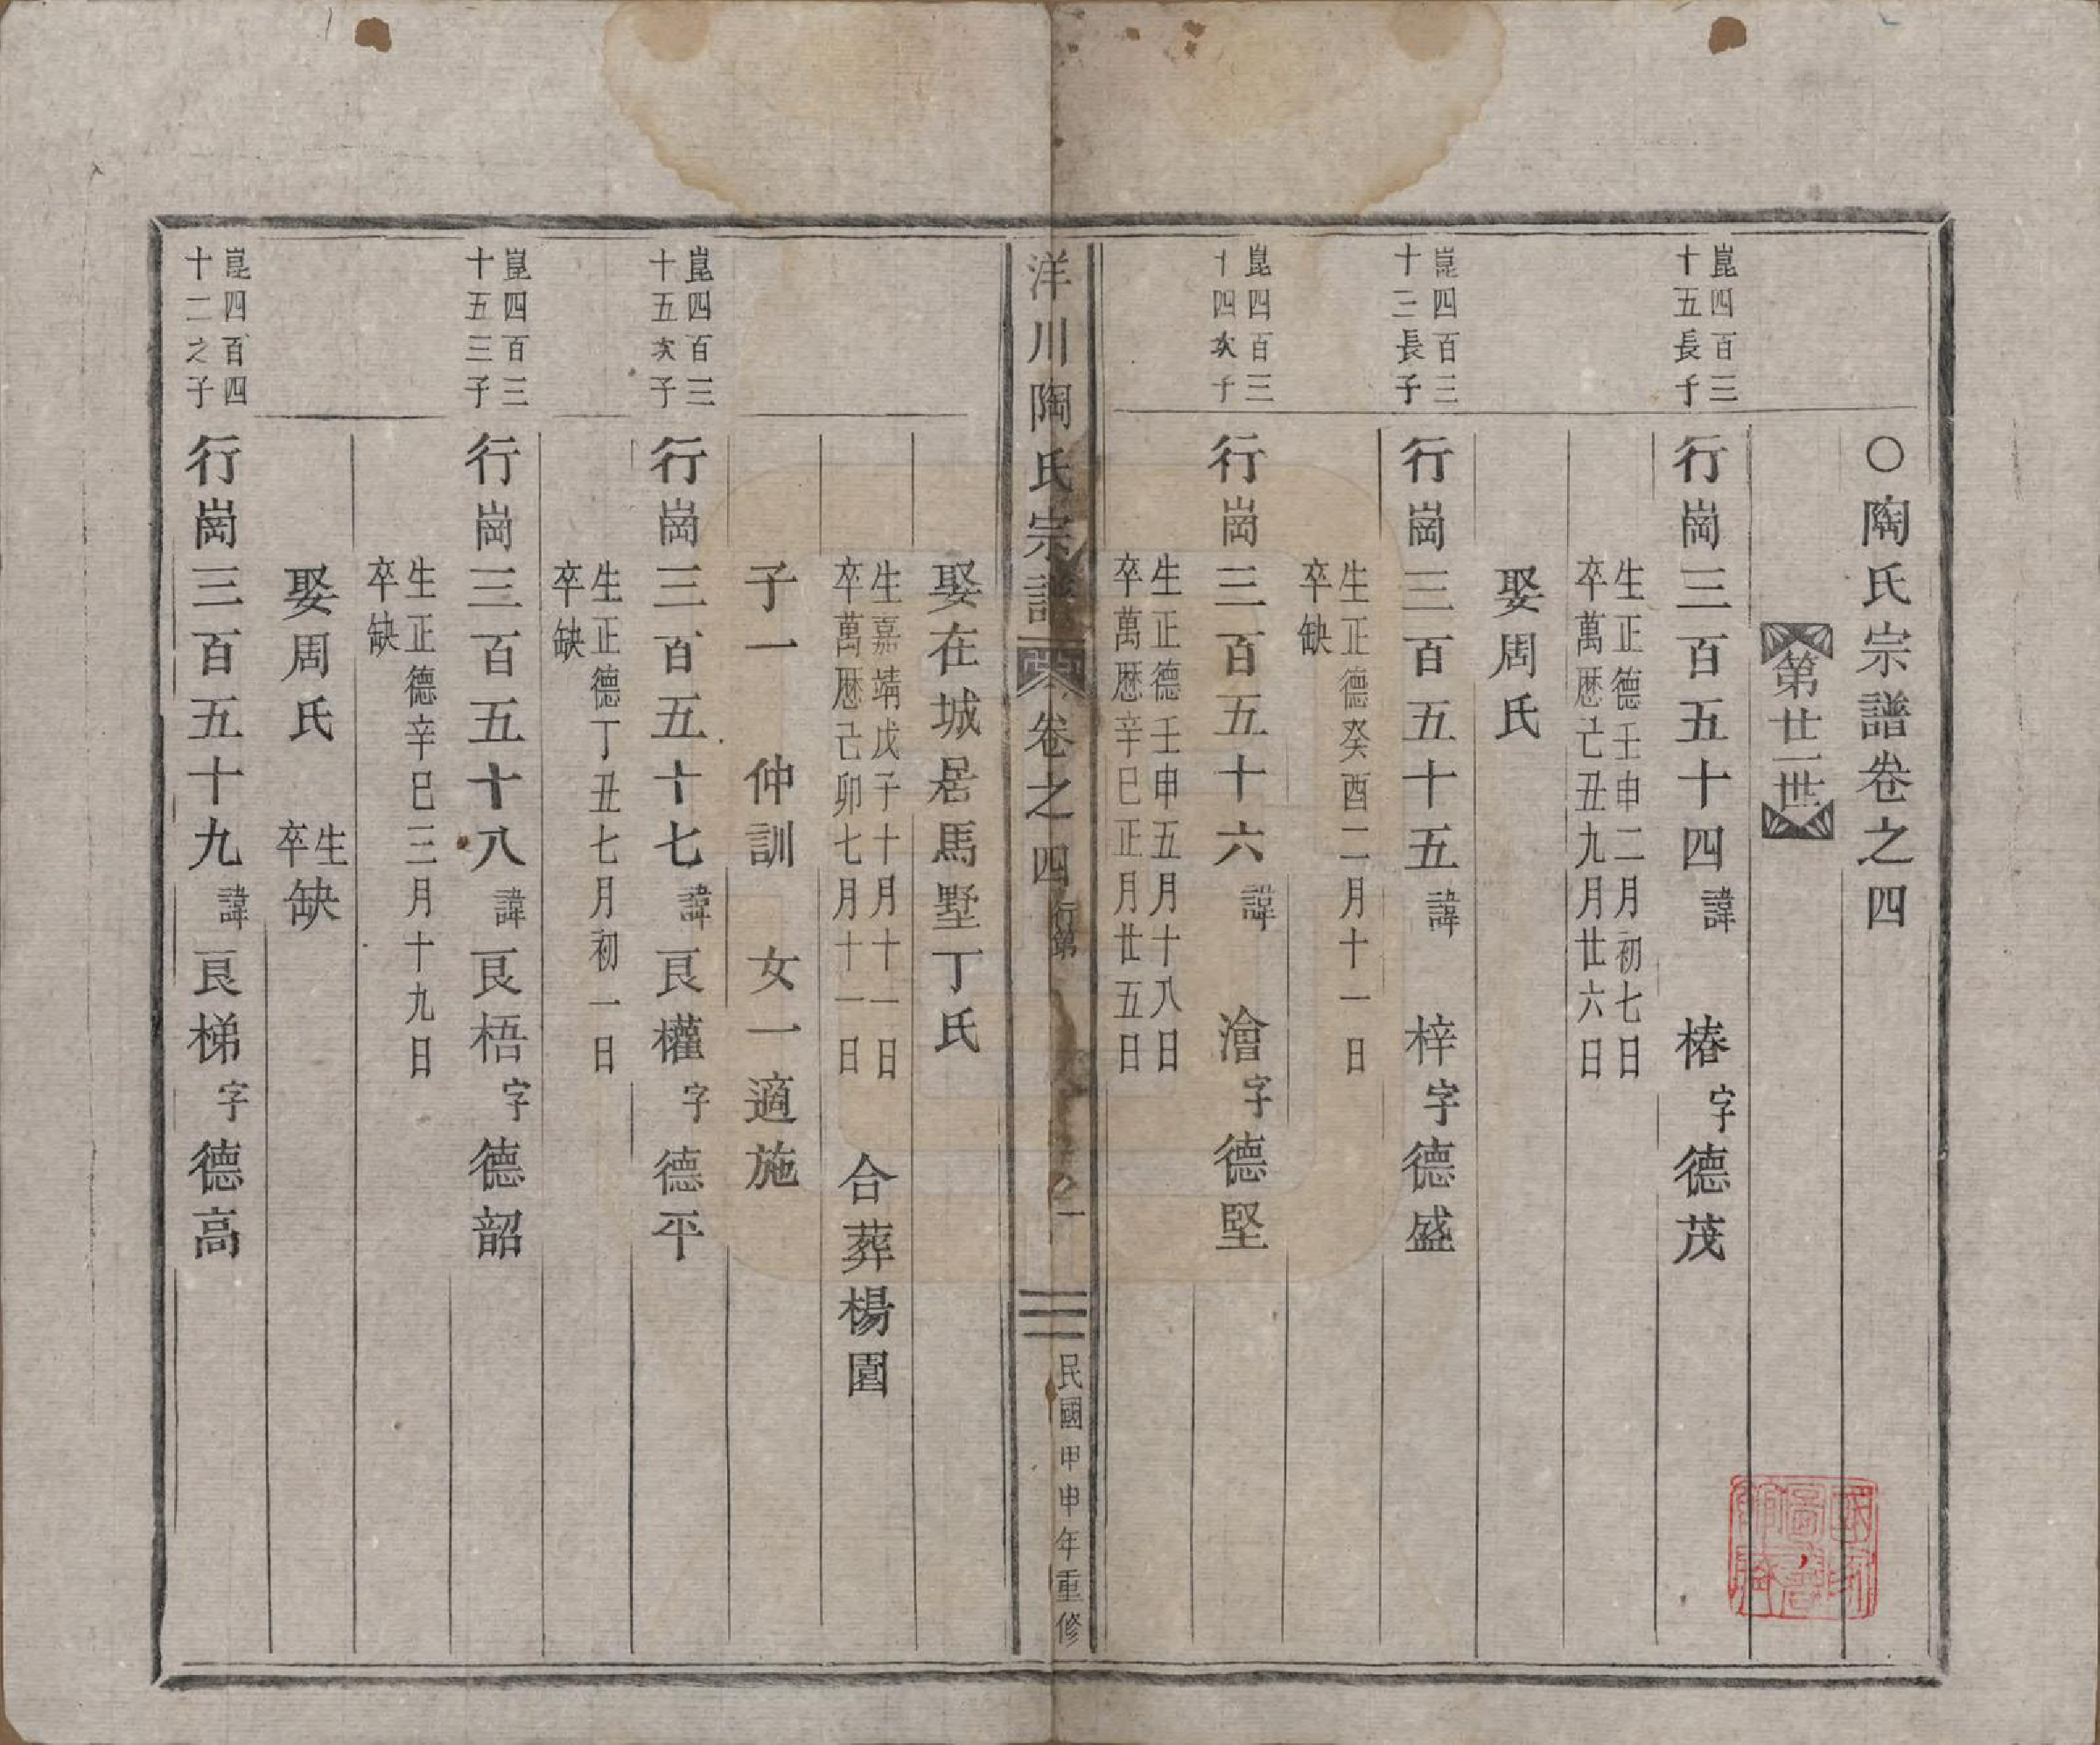 ○陶氏宗譜卷之四
第廿一世
崑四百三
十五長子
行崗三百五十四諱 椿字德茂
生正德壬申二月初七日
卒萬厯己丑九月廿六日
娶周氏
崑四百三
十三長子
行崗三百五十五諱 梓字德盛
生正德癸酉二月十一日
卒缺
崑四百三
十四次子
行崗三百五十六諱 澮字德堅
生正德壬申五月十八日
卒萬厯辛巳正月廿五日
洋川陶氏宗譜
卷之四
行第
民國甲申年重修
娶在城居馬墅丁氏
生嘉靖戊子十月十一日
卒萬厯己卯七月十一日
合葬楊園
子一 仲訓 女一適施
崑四百三
十五次子
行崗三百五十七諱艮權字德平
生正德丁丑七月初一日
卒缺
崑四百三
十五三子
行崗三百五十八諱艮梧字德韶
生正德辛巳三月十九日
卒缺
娶周氏 生
卒缺
崑四百四
十二之子
行崗三百五十九諱艮梯字德高